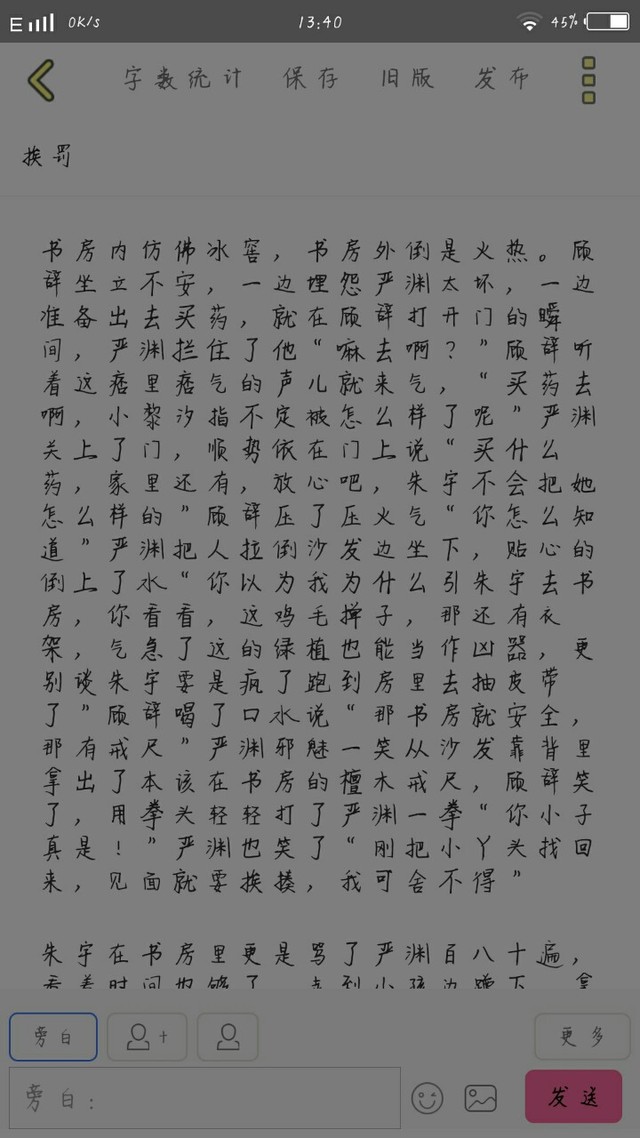 E 0K/s 13:40 45%
字数统计 保存 旧版 发布
挨罚
书房内仿佛冰窖，书房外倒是火热。顾
辞坐立不安，一边埋怨严渊太坏，一边
准备出去买药，就在顾辞打开门的瞬
间，严渊拦住了他“嘛去啊？”顾辞听
着这痞里痞气的声儿就来气，“买药去
啊，小黎汐指不定被怎么样了呢”严渊
关上了门，顺势依在门上说“买什么
药，家里还有，放心吧，朱宇不会把她
怎么样的”顾辞压了压火气“你怎么知
道”严渊把人拉倒沙发边坐下，贴心的
倒上了水“你以为我为什么引朱宇去书
房，你看看，这鸡毛掸子，那还有衣
架，气急了这的绿植也能当作凶器，更
别谈朱宇要是疯了跑到房里去抽皮带
了”顾辞喝了口水说“那书房就安全，
那有戒尺”严渊邪魅一笑从沙发靠背里
拿出了本该在书房的檀木戒尺，顾辞笑
了，用拳头轻轻打了严渊一拳“你小子
真是！”严渊也笑了“刚把小丫头找回
来，见面就要挨揍，我可舍不得”
朱宇在书房里更是骂了严渊百八十遍，
看着时间也够了，走到小孩边蹲下，拿
旁白 更多
旁白： 发送